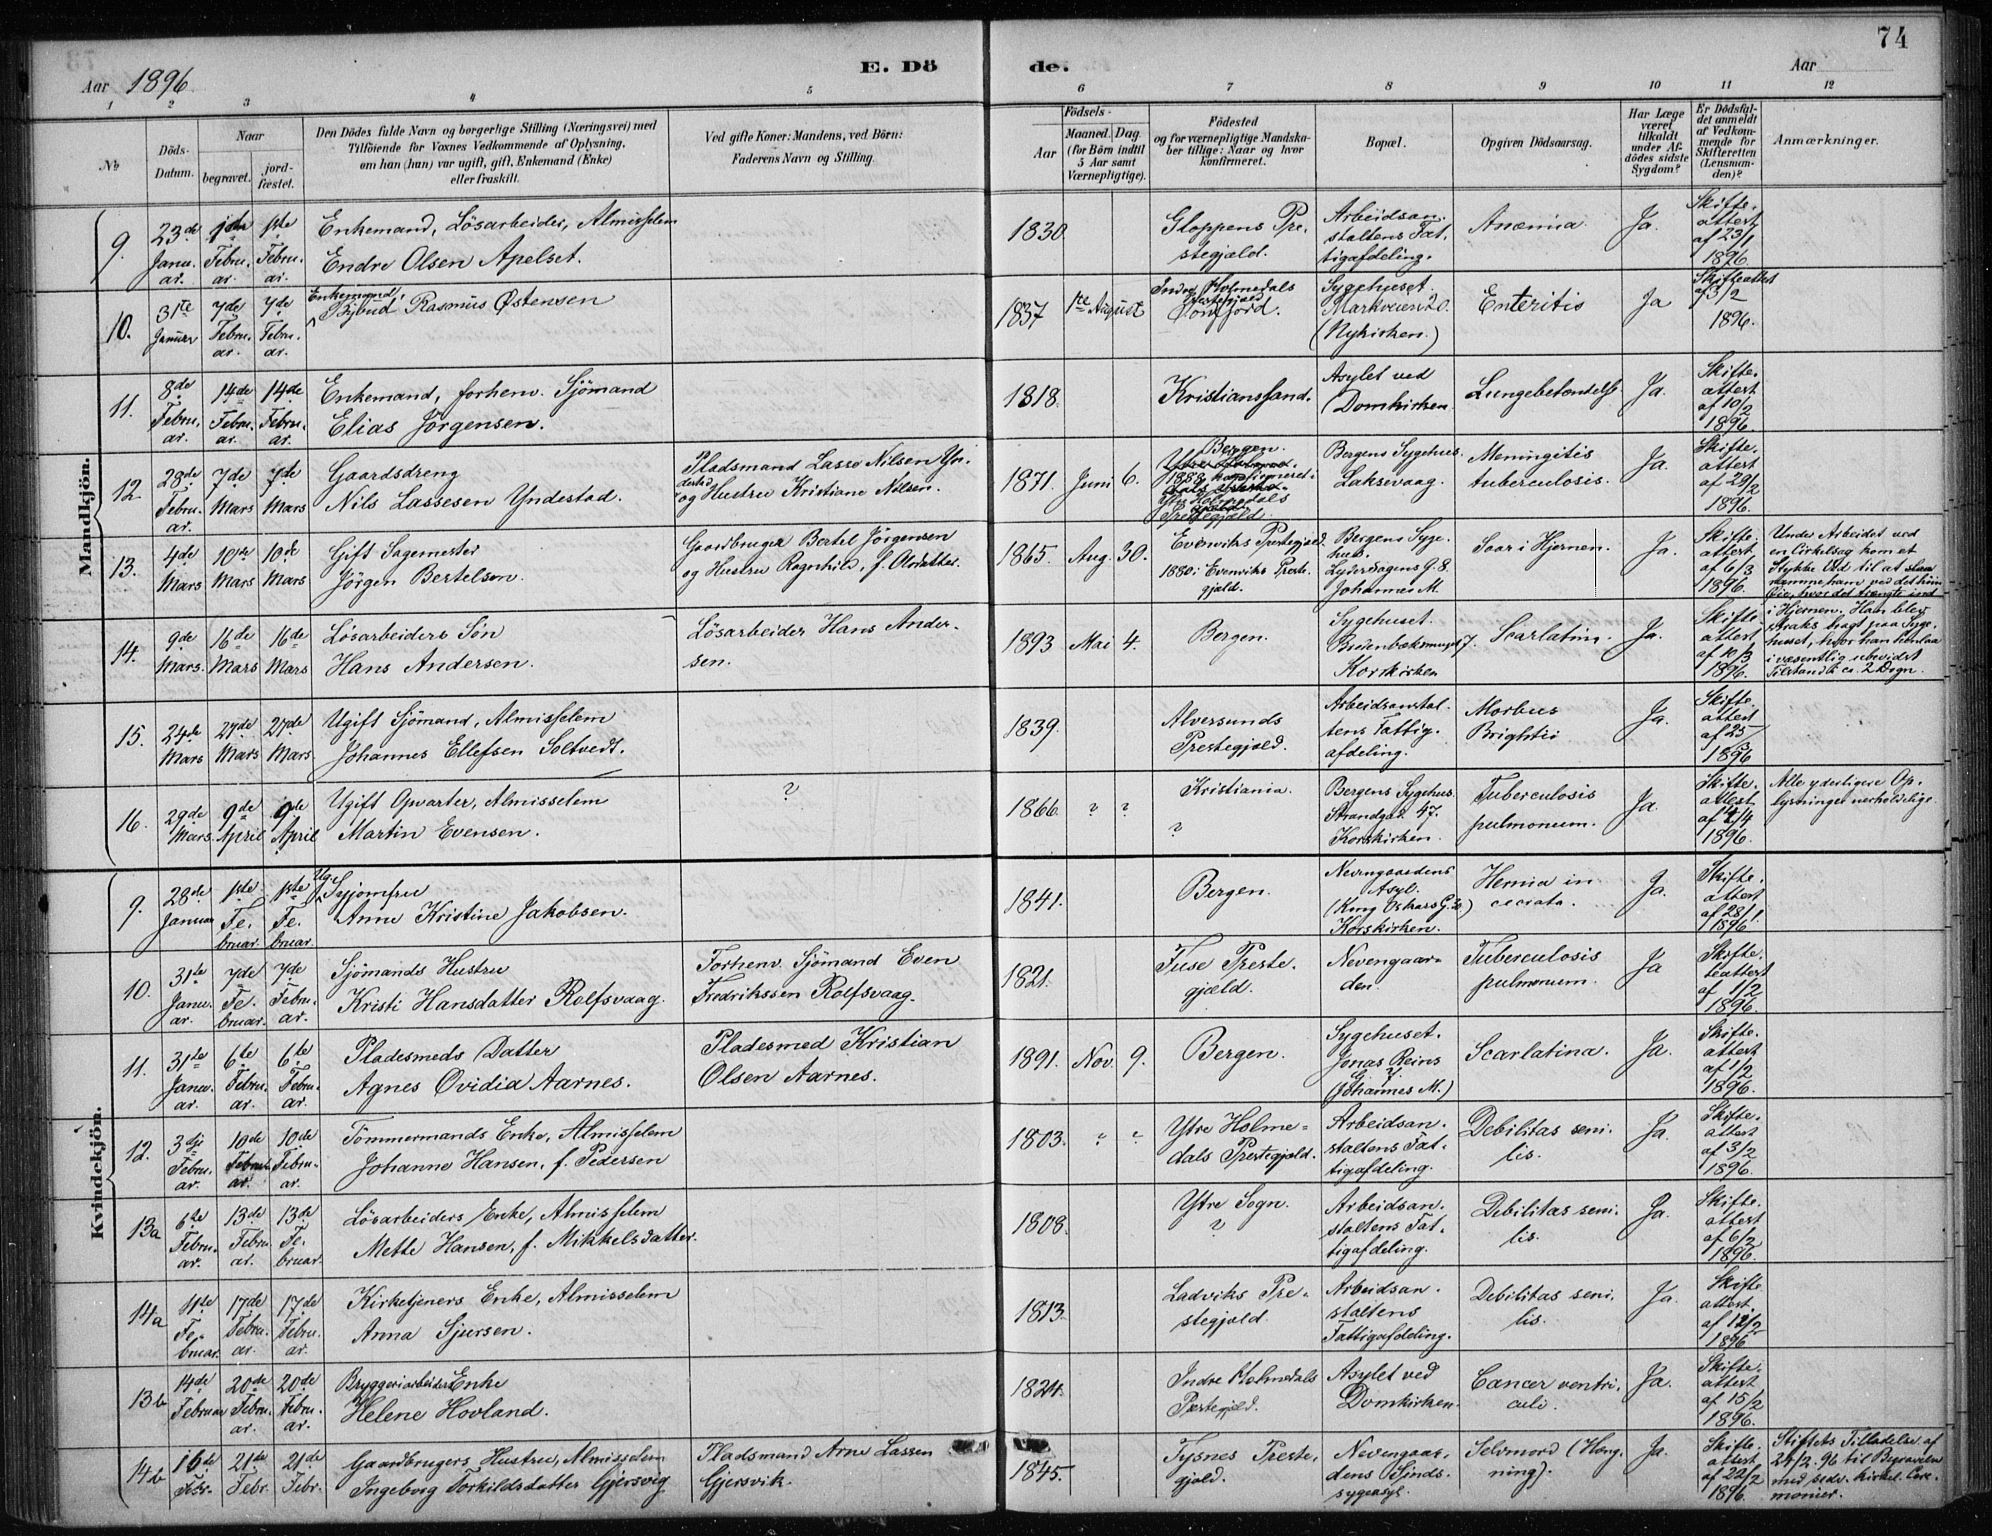 74
Aar 1896
E. Dö de.
Aar
1 2 3 4 5 6 7 8 9 10 11 12
No.
Döds-Datum.
Naar
begravet.
jord-fæstet.
Den Dödes fulde Navn og borgerlige Stilling (Næringsvei) med
Tilföiende for Voxnes Vedkommende af Oplysning,
om han (hun) var ugift, gift, Enkemand (Enke)
eller fraskilt.
Ved gifte Koner: Mandens, ved Börn:
Faderens Navn og Stilling.
Födsels-
Aar
Maaned. Dag.
(for Börn indtil
5 Aar samt
Værnepligtige).
Födested
og for værnepligtige Mandska-
ber tillige: Naar og hvor
konfirmeret.
Bopæl.
Opgiven Dödsaarsag.
Har Læge
været
tilkaldt
under Af-
dödes sidste
Sygdom?
Er Dödsfal-
det anmeldt
af Vedkom-
mende for
Skifteretten
(Lensman-
den)?
Anmærkninger.
Mandkjön.
9. 23de Janu. ar. 1ste Febru. ar. 1ste Febru. ar.
Enkemand, Lösarbeider, Almisselem
Endre Olsen Apelset.
1830. Gloppens Pre-
stegjæld.
Arbeidsan-
staltens Fat-
tigafdeling.
Anæmia. Ja. Skifte-
attest
af 23/1
1896
10. 31te Januar 7de Febru. ar. 7de Febru. ar.
Enkemand,
Bybud Rasmus Østensen
1837 1ste August
Indre Holmedals
Prestegjæld
Søndfjord.
Sygehuset.
Markveien 20.
(Nykirken.)
Enteritis Ja Skifteattest
af 3/2
1896.
11. 8de Febru. ar. 14de Febru. ar. 14de Febru. ar.
Enkemand, forhenv. Sjömand
Elias Jörgensen.
1818. Kristianssand.
Asylet ved
Domkirken.
Lungebetændelse Ja. Skifte-
attest
af 10/2
1896.
12. 28de Febru. ar. 7de Mars 7de Mars
Gaardsdreng
Nils Lassesen Yndestad.
Pladsmand Lasse Nilsen Yn-
destad
og Hustru Kristiane Nilsen.
1871. Juni 6.
Bergen.
1888 konfirmeret i
Ytre Holmedals
Prestegjæld.
Bergens Sygehus.
Laksevaag.
Meningitis
tuberculosis.
Ja. Skifte-
attest
af 29/2
1896.
13. 4de Mars 10de Mars 10de Mars
Gift Sagmester
Jörgen Bertelsen.
Gaardbruger Bertel Jörgensen
og Hustru Ragnhild, f. Olsdatter.
1865. Aug. 30.
Evenviks Prestegjæld.
1880 i Evenviks Preste-
gjæld.
Bergens Syge-
hus.
Lyder Sagens G. 8.
Johannes M.
Saar i Hjernen. Ja. Skifte-
attest
af 6/3
1896.
Under Arbeidet ved
en Cirkelsag kom et
Stykke Ved til at
ramme ham ved det höire
Öie, hvor det trængte ind
i Hjernen. Han blev
straks bragt paa Syge-
huset, hvor han henlaa
i væsentlig ubevidst
Tilstand i ca. 2 Dögn.
14. 9de Mars. 16de Mars 16de Mars
Lösarbeiders Sön
Hans Andersen.
Lösarbeider Hans Ander-
sen.
1893 Mai 4. Bergen.
Sygehuset.
Breienbakssmuget 7.
Korskirken
Scarlatina. Ja. Skifte-
attest
af 10/3
1896.
15. 24de Mars 27de Mars 27de Mars.
Ugift Sjömand, Almisselem
Johannes Ellefsen Soltvedt.
1839. Alversunds
Prestegjæld.
Arbeidsanstal-
tens Fattig-
afdeling.
Morbus
Brightii
Ja. Skifte-
attest
af 25/3
1896
16. 29de Mars. 9de April 9de April
Ugift Opvarter, Almisselem
Martin Evensen.
?
1866. ? ? Kristiania.
?
Bergens Sygehus.
Strandgad. 47.
Korskirken.
Tuberculosis
pulmonum.
Ja. Skifte-
attest
af 4/4
1896.
Alle yderligere Op-
lysninger uerholdelige.
Kvindekjön.
9. 28de Januar 1ste Fe. bruar. 1ste Fe. bruar.
Ug.
Syjomfru
Anne Kristine Jakobsen.
1841. Bergen.
Nevengaardens
Asyl.
(Kong Oskars G.)
Korskirken.
Hernia in
ceciata.
Ja. Skifte-
attest
af 28/1
1896
10. 31te Janu. ar. 7de Fe. bruar. 7de Febru. ar.
Sjömands Hustru
Kristi Hansdatter Rolfsvaag.
Forhenv. Sjömand Even
Fredrikssen Rolfsvaag.
1821. Fuse Preste-
gjæld.
Nevengaar-
den.
Tuberculosis
pulmonum.
Ja Skif-
teattest
af 1/2
1896.
11. 31te Janu. ar. 6te Febru. ar. 6te Febru. ar.
Pladesmeds Datter
Agnes Ovidia Aarnes.
Pladesmed Kristian
Olsen Aarnes.
1891. Nov. 9. Bergen.
Sygehuset.
Jonas Reins
G. 7.
(Johannes M.)
Scarlatina. Ja. Skifte-
attest
af 1/2
1896.
12. 3dje Febru. ar. 10de Febru. ar. 10de Febru. ar.
Tömmermands Enke, Almisselem
Johanne Hansen, f. Pedersen
1803. ? ? Ytre Holme-
dals Prestegjæld.
Arbeidsan-
staltens Fat-
tigafdeling.
Debilitas seni-
lis.
Ja. Skifte-
attest
af 3/2
1896.
13a 6te Febru. ar. 13de Febru. ar. 13de Fe. bruar.
Lösarbeiders Enke, Almisselem
Mette Hansen, f. Mikkelsdatter.
1808. Ytre Sogn.
?
Arbeidsan-
staltens Fat-
tigafdeling.
Debilitas seni-
lis.
Ja. Skifte-
attest
af 6/2
1896.
14a 11te Fe. bruar. 17de Febru. ar. 17de Febru. ar.
Kirketjeners Enke, Almisselem
Anna Sjursen.
1813. Ladviks Pre-
stegjæld
Arbeidsan-
staltens
Fattigafdeling.
Debilitas seni-
lis.
Ja. Skifte-
attest.
af 12/2
1896
13b 14de Februar 20de Febru. ar. 20de Febru. ar.
Bryggeriarbeiders Enke
Helene Hovland.
1824. Indre Holmedals
Prestegjæld.
Asylet ved
Domkirken.
Cancer ventri-
culi.
Ja. Skifte-
attest
af 15/2
1896.
14b 16de Febr. 21de Febr. 21de Febr.
Gaardbrugers Hustru, Almisselem
Ingeborg Torkildsdatter Gjersvig
Pladsmand Arne Lassen
Gjersvik.
1845. Tysnes Preste-
gjæld.
Nevengaar-
dens Sinds-
sygeasyl.
Selvmord (Hæng-
ning).
Ja. Skifte-
attest
af 22/2
1896.
Stiftets Tilladelse af
24/2 96 til Begravelse
med sedv. kirkel. Cere-
monier.